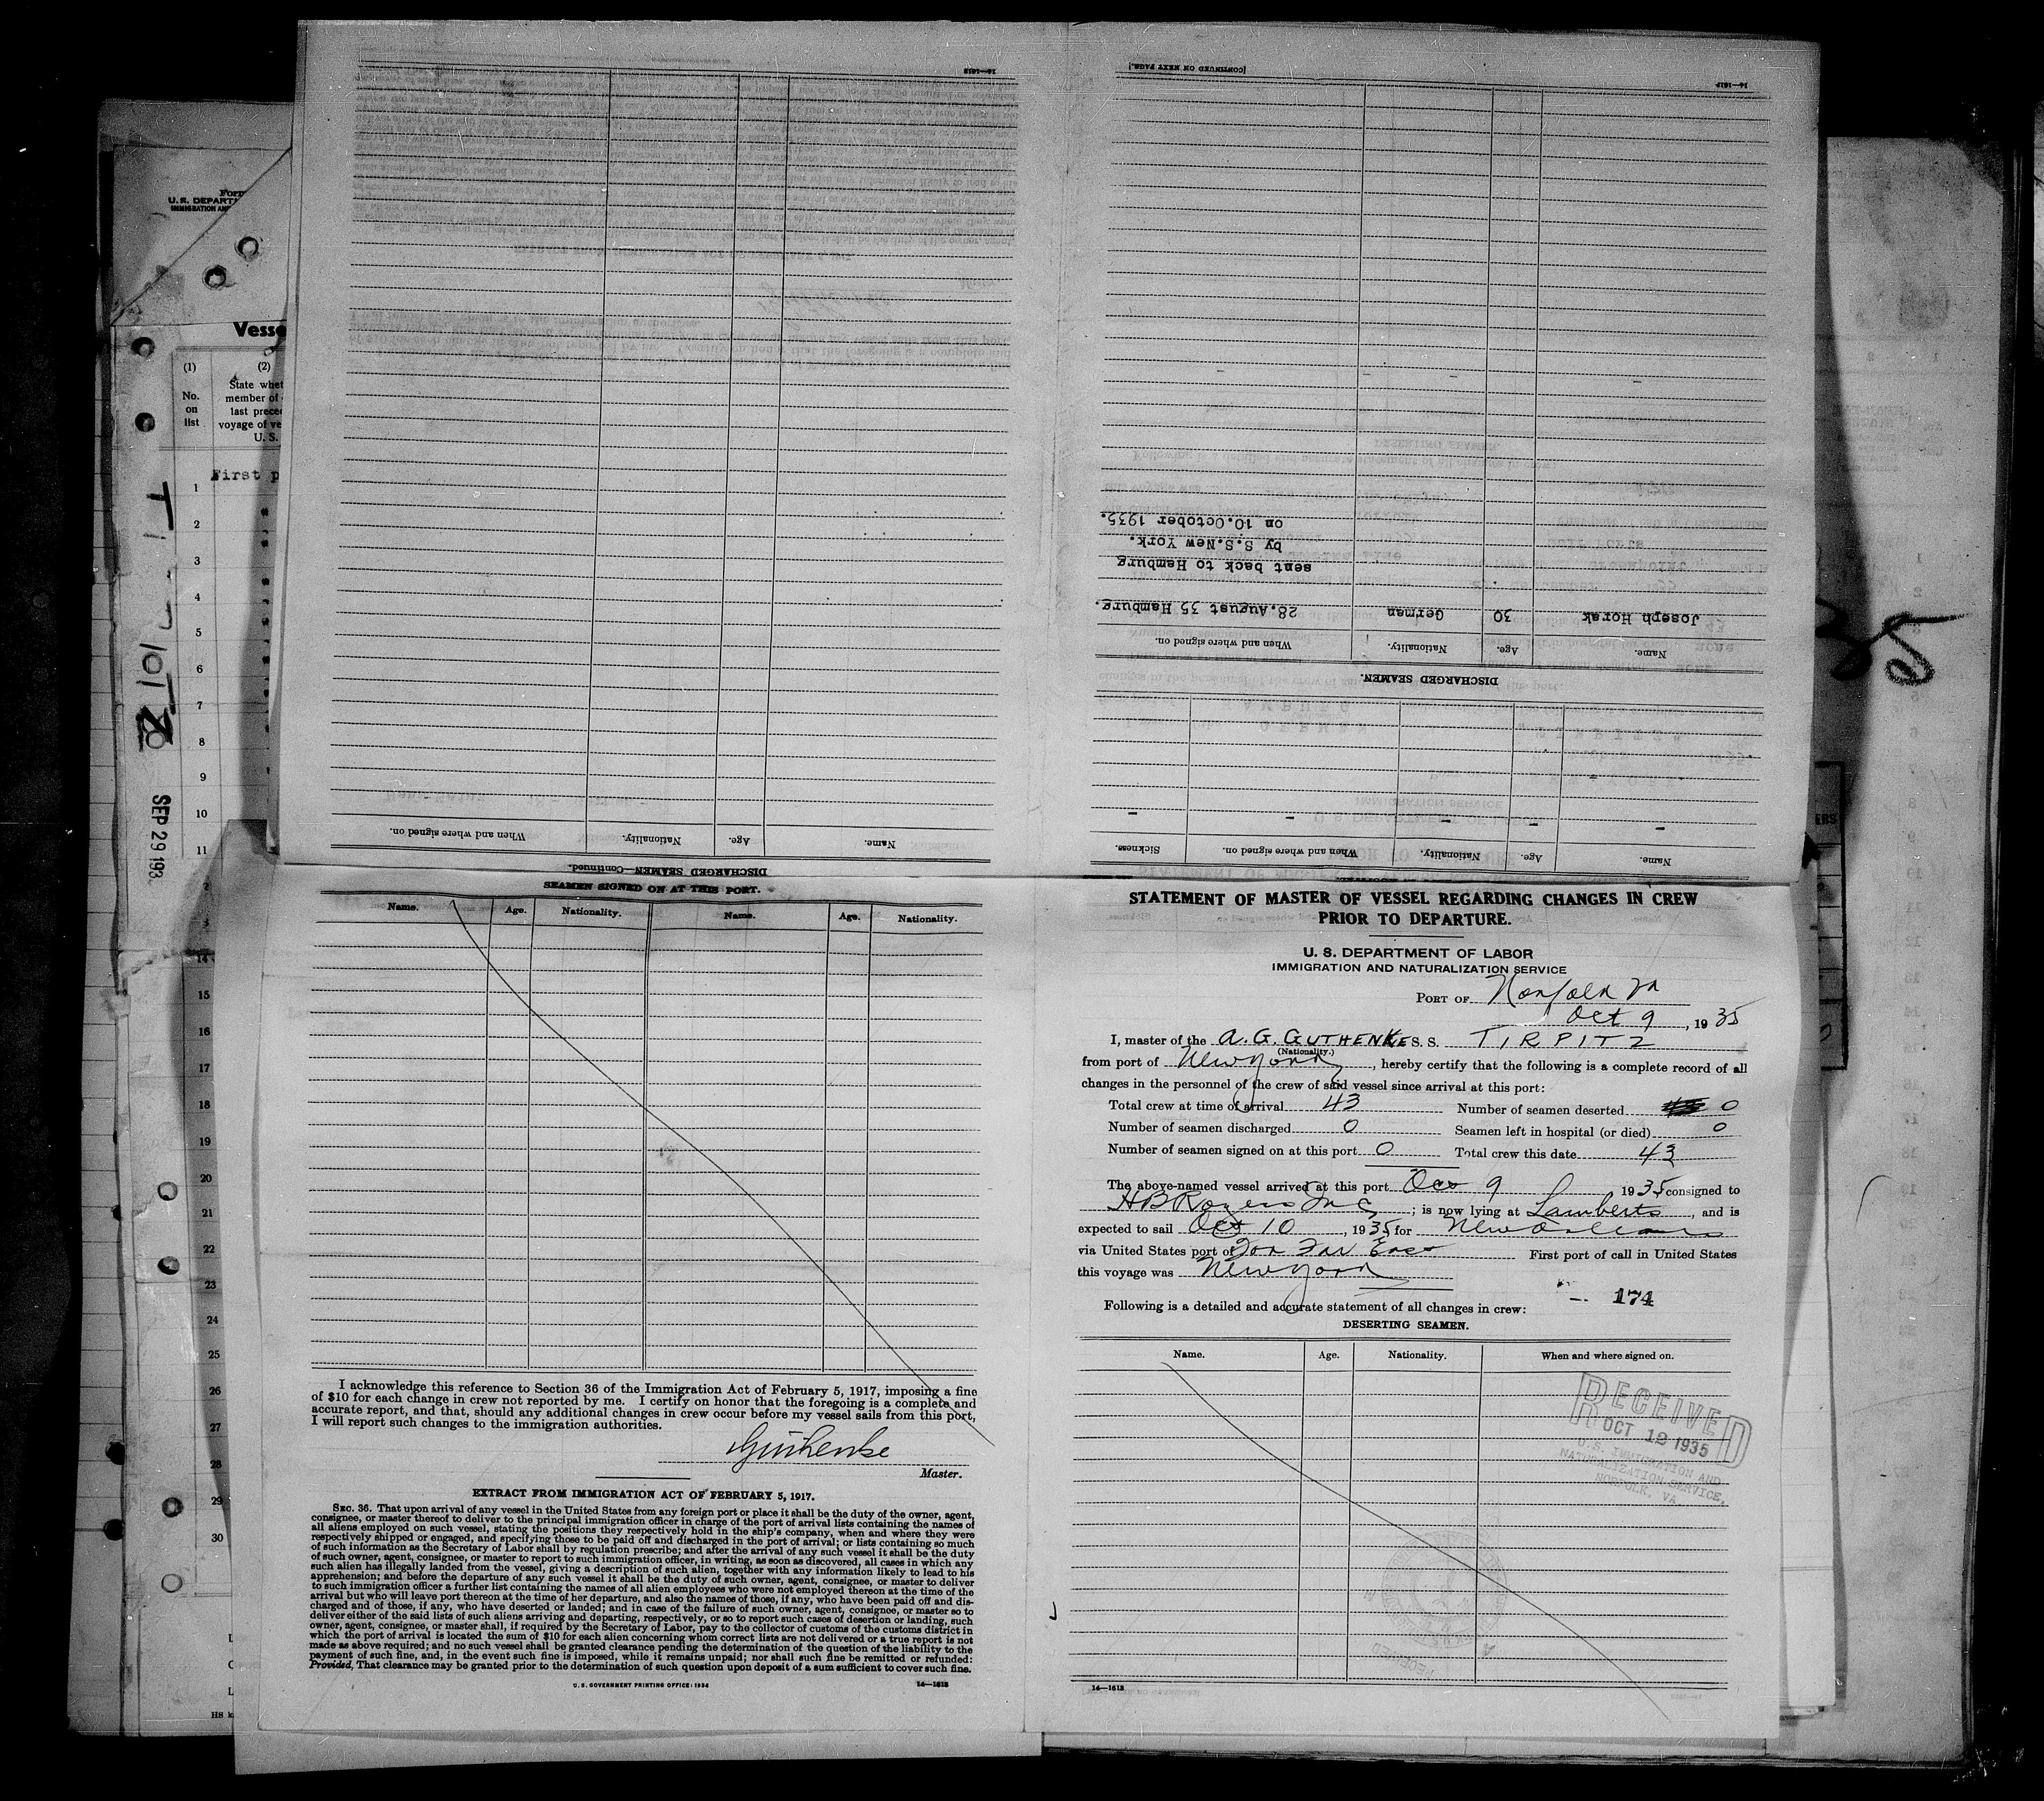 Form
U. S. DEPART
IMMIGRATION AND
Vesse
(1)
(2)
No.
on
list
State whet
member of
last prece
voyage of ve
U. S.
First p
1
2
3
4
5
6
7
8
9
10
11
14
15
16
17
18
19
20
21
22
23
24
25
26
27
28
29
30
SEP 29 193
16—1613
DISCHARGED SEAMEN—Continued.
Name.
Age.
Nationality.
When and where signed on.
[CONTINUED ON NEXT PAGE.]
Name.
Age.
Nationality.
When and where signed on.
Sickness.
–
–
–
–
–
DISCHARGED SEAMEN.
Name.
Age.
Nationality.
When and where signed on.
Joseph Horak 30 German 28.August 35 Hamburg.
sent back to Hamburg
by S.S.New York.
on 10.October 1935.
SEAMEN SIGNED ON AT THIS PORT.
Name. Age. Nationality. Name. Age. Nationality.
I acknowledge this reference to Section 36 of the Immigration Act of February 5, 1917, imposing a fine
of $10 for each change in crew not reported by me. I certify on honor that the foregoing is a complete and
accurate report, and that, should any additional changes in crew occur before my vessel sails from this port,
I will report such changes to the immigration authorities.
Guthenke
Master.
EXTRACT FROM IMMIGRATION ACT OF FEBRUARY 5, 1917.
SEC. 36. That upon arrival of any vessel in the United States from any foreign port or place it shall be the duty of the owner, agent,
consignee, or master thereof to deliver to the principal immigration officer in charge of the port of arrival lists containing the names of
all aliens employed on such vessel, stating the positions they respectively hold in the ship's company, when and where they were
respectively shipped or engaged, and specifying those to be paid off and discharged in the port of arrival; or lists containing so much
of such information as the Secretary of Labor shall by regulation prescribe; and after the arrival of any such vessel it shall be the duty
of such owner, agent, consignee, or master to report to such immigration officer, in writing, as soon as discovered, all cases in which any
such alien has illegally landed from the vessel, giving a description of such alien, together with any information likely to lead to his
apprehension; and before the departure of any such vessel it shall be the duty of such owner, agent, consignee, or master to deliver
to such immigration officer a further list containing the names of all alien employees who were not employed thereon at the time of the
arrival but who will leave port thereon at the time of her departure, and also the names of those, if any, who have been paid off and dis-
charged and of those, if any, who have deserted or landed; and in case of the failure of such owner, agent, consignee, or master so to
deliver either of the said lists of such aliens arriving and departing, respectively, or so to report such cases of desertion or landing, such
owner, agent, consignee, or master shall, if required by the Secretary of Labor, pay to the collector of customs of the customs district in
which the port of arrival is located the sum of $10 for each alien concerning whom correct lists are not delivered or a true report is not
made as above required; and no such vessel shall be granted clearance pending the determination of the question of the liability to the
payment of such fine, and, in the event such fine is imposed, while it remains unpaid; nor shall such fine be remitted or refunded:
Provided, That clearance may be granted prior to the determination of such question upon deposit of a sum sufficient to cover such fine.
U. S. GOVERNMENT PRINTING OFFICE: 1934
14—1613
STATEMENT OF MASTER OF VESSEL REGARDING CHANGES IN CREW
PRIOR TO DEPARTURE.
U. S. DEPARTMENT OF LABOR
IMMIGRATION AND NATURALIZATION SERVICE
PORT OF Norfolk Va
Oct 9, 1935
I, master of the A. G. GUTHENKE S. S. TIRPITZ
(Nationality.)
from port of New York, hereby certify that the following is a complete record of all
changes in the personnel of the crew of said vessel since arrival at this port:
Total crew at time of arrival 43 Number of seamen deserted 0
Number of seamen discharged 0 Seamen left in hospital (or died) 0
Number of seamen signed on at this port 0 Total crew this date 43
The above-named vessel arrived at this port Oct 9 1935 consigned to
H B Rogers Inc; is now lying at Lamberts, and is
expected to sail Oct 10, 1935, for New Orleans
via United States port of For Far East First port of call in United States
this voyage was New York
174
Following is a detailed and accurate statement of all changes in crew:
DESERTING SEAMEN.
Name. Age. Nationality. When and where signed on.
RECEIVED
OCT 12 1935
U. S. IMMIGRATION AND
NATURALIZATION SERVICE,
NORFOLK, VA.
14—1613